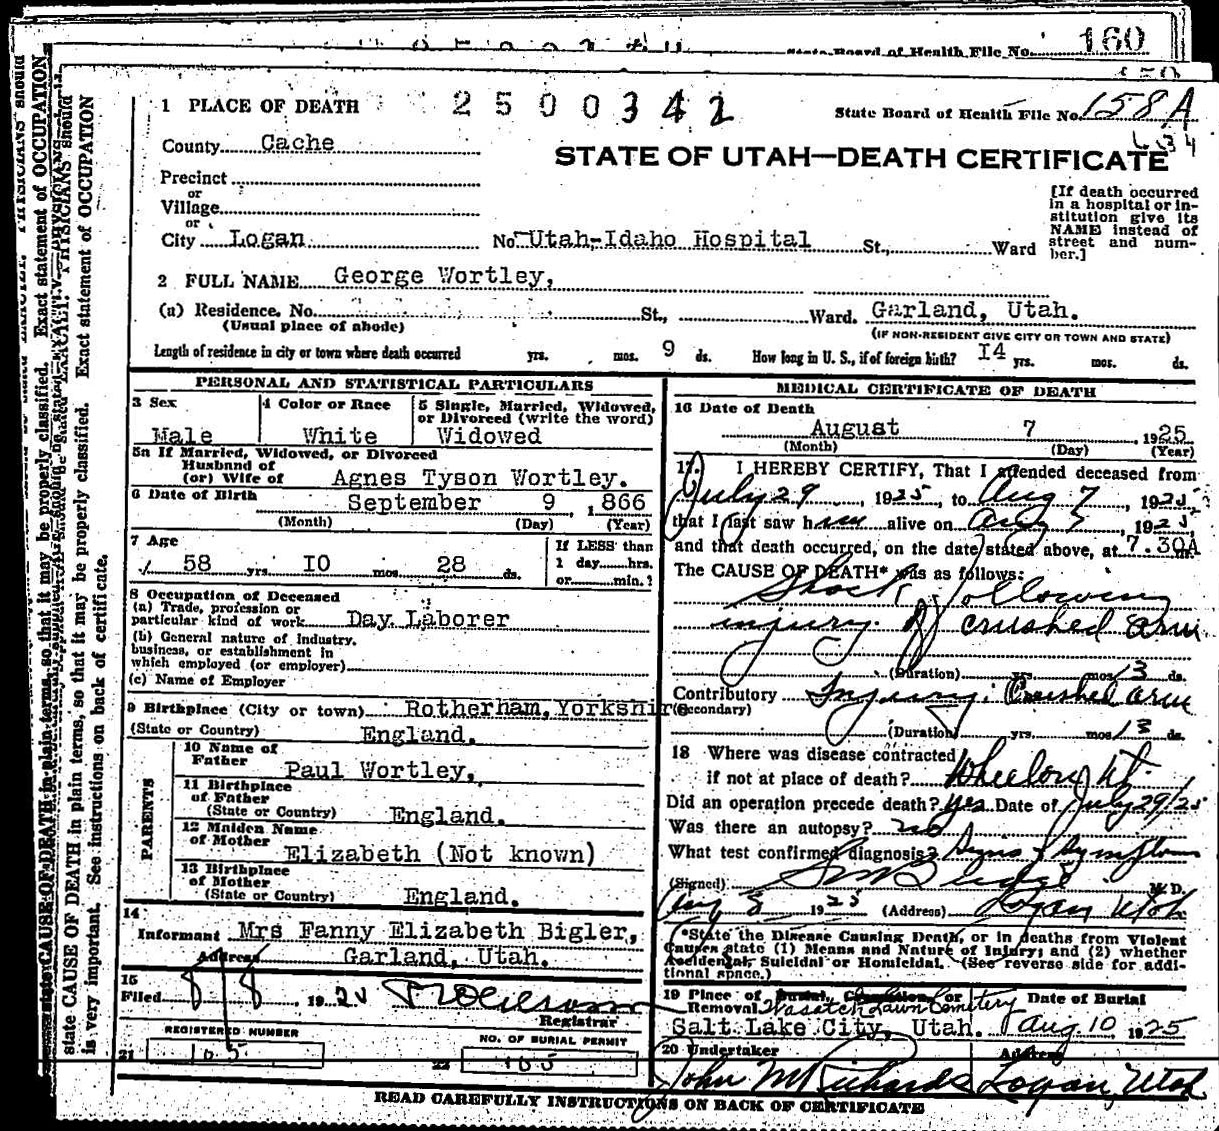 State Board of Health File No. 160
1 PLACE OF DEATH 2500342 State Board of Health File No. 158A
634
County Cache
STATE OF UTAH—DEATH CERTIFICATE
Precinct
or
Village
or
City Logan No. Utah-Idaho Hospital St., Ward
[If death occurred in a hospital or institution give its NAME instead of street and number.]
2 FULL NAME George Wortley,
(a) Residence. No. St., Ward. Garland, Utah.
(Usual place of abode) (IF NON-RESIDENT GIVE CITY OR TOWN AND STATE)
Length of residence in city or town where death occurred yrs. mos. 9 ds. How long in U. S., if of foreign birth? I4 yrs. mos. ds.
PERSONAL AND STATISTICAL PARTICULARS
3 Sex 4 Color or Race 5 Single, Married, Widowed, or Divorced (write the word)
Male White Widowed
5a If Married, Widowed, or Divorced
Husband of
(or) Wife of Agnes Tyson Wortley.
6 Date of Birth September 9, 1866
(Month) (Day) (Year)
7 Age If LESS than
58 yrs. IO mos. 28 ds. 1 day hrs.
or min.?
8 Occupation of Deceased
(a) Trade, profession or
particular kind of work Day Laborer
(b) General nature of Industry,
business, or establishment in
which employed (or employer)
(c) Name of Employer
9 Birthplace (City or town) Rotherham, Yorkshire
(State or Country) England.
PARENTS
10 Name of
Father Paul Wortley,
11 Birthplace
of Father
(State or Country) England.
12 Maiden Name
of Mother Elizabeth (Not known)
13 Birthplace
of Mother
(State or Country) England.
14
Informant Mrs Fanny Elizabeth Bigler,
Address Garland, Utah.
15
Filed 8/8 1925
Registrar
REGISTERED NUMBER NO. OF BURIAL PERMIT
21 105 22 105
MEDICAL CERTIFICATE OF DEATH
16 Date of Death
August 7 1925
(Month) (Day) (Year)
17. I HEREBY CERTIFY, That I attended deceased from
July 29, 1925, to Aug 7, 1925,
that I last saw him alive on Aug 7, 1925,
and that death occurred, on the date stated above, at 7.30A m.
The CAUSE OF DEATH* was as follows:
Shock following
injury of crushed arm
(Duration) yrs. mos. 13 ds.
Contributory Injury. Crushed arm
(Secondary)
(Duration) yrs. mos. 13 ds.
18 Where was disease contracted
if not at place of death? Wheelon Ut.
Did an operation precede death? Yes Date of July 29/25
Was there an autopsy? no
What test confirmed diagnosis? Signs & Symptoms
(Signed) M. D.
Aug 8 1925 (Address) Logan Utah
*State the Disease Causing Death, or in deaths from Violent
Causes state (1) Means and Nature of Injury; and (2) whether
Accidental, Suicidal or Homicidal. (See reverse side for additional space.)
19 Place of Burial, Cremation or Date of Burial
Removal Wasatch Lawn Cemetery
Salt Lake City, Utah. Aug. 10 1925
20 Undertaker Address
John M Richards Logan, Utah
READ CAREFULLY INSTRUCTIONS ON BACK OF CERTIFICATE
state CAUSE OF DEATH in plain terms, so that it may be properly classified. Exact statement of OCCUPATION
is very important. See instructions on back of certificate.